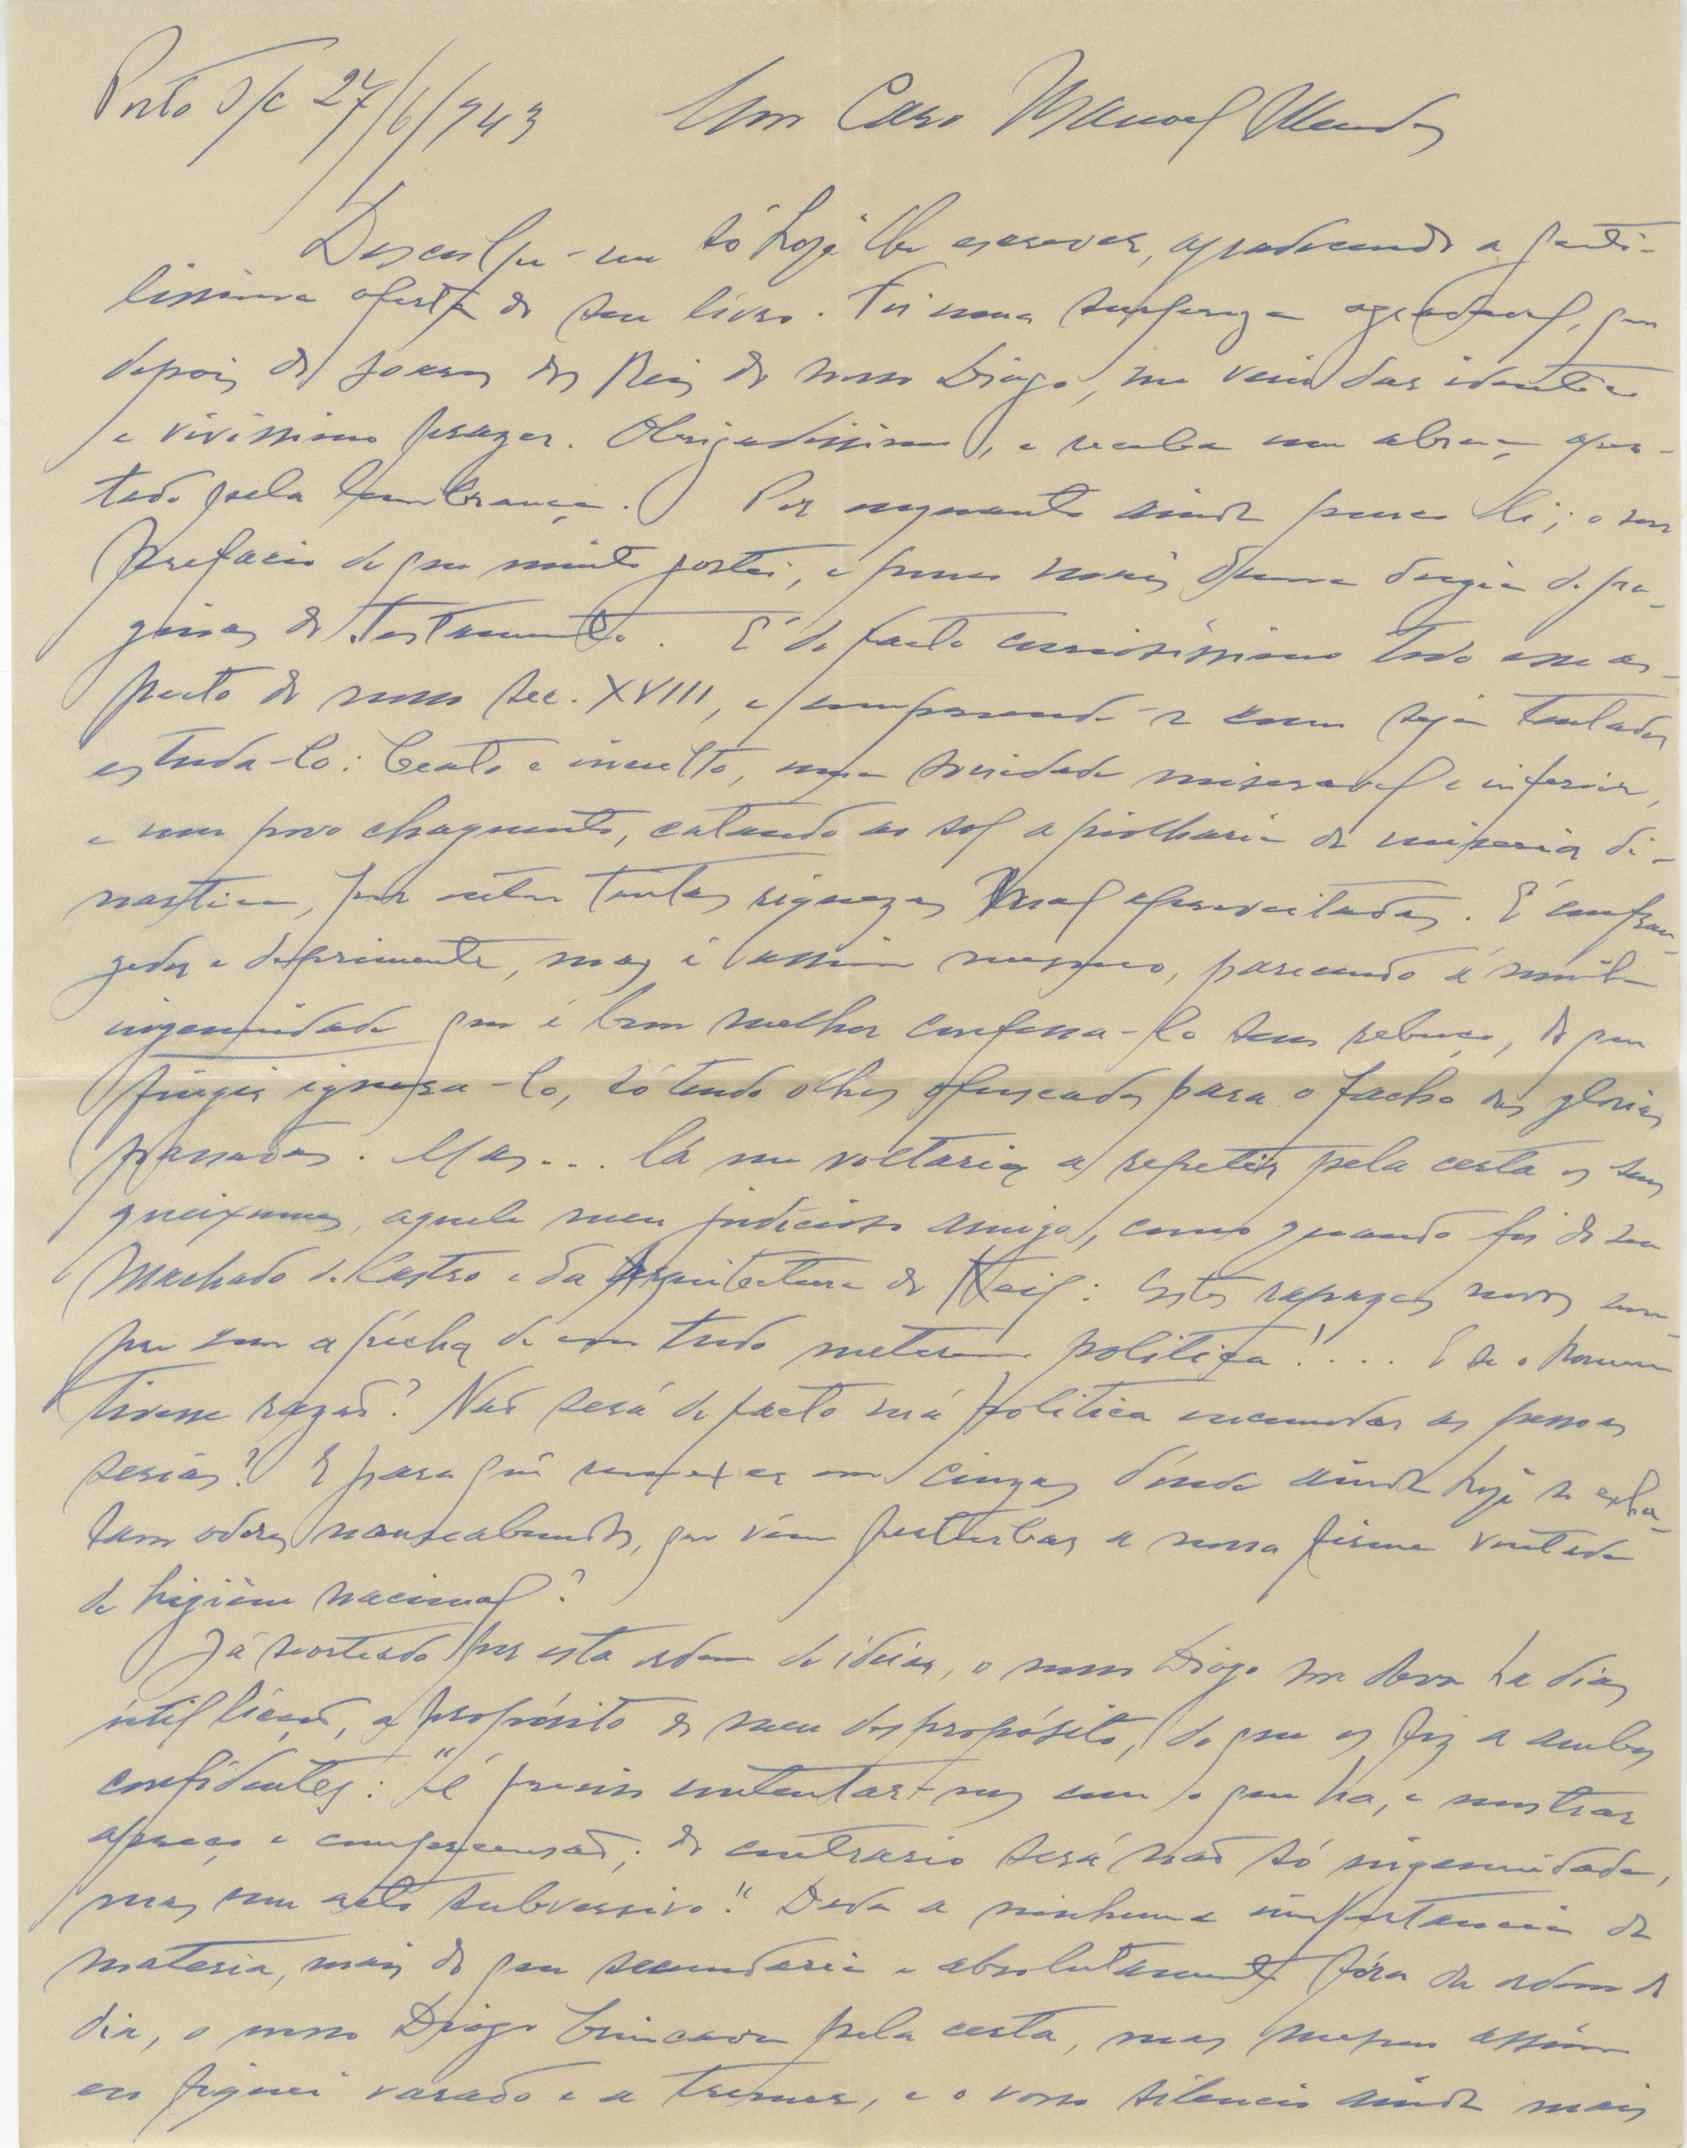 Porto S/c 27/6/943 Meu Caro Manoel Mendes
Desculpe-me só hoje lhe escrever, agradecendo a genti-
lissima oferta do seu livro. Foi uma surpreza agradavel, que
depois do Joaquim dos Reis do nosso Diogo, me veio dar identico
e vivissimo prazer. Obrigadissimo, e receba um abraço aper-
tado pela lembrança. Por enquanto ainda pouco li; o seu
prefacio de que muito gostei, e pouco mais duma duzia de pa-
ginas do Testamento. É de facto curiosissimo todo esse as-
pecto do nosso sec. XVIII, e compreende-se como seja tentador
estuda-lo: beato e inculto, uma sociedade miseravel e inferior,
e um povo chaguento, catando ao sol a piolharia da miseria di-
nastica, por entre tantas riquezas mal aproveitadas. É confran-
gedor e deprimente, mas é assim mesmo, parecendo á minha
ingenuidade que é bem melhor confessa-lo sem rebuço, do que
fingir ignora-lo, só tendo olhos ofuscados para o facho das glorias
passadas. Mas... lá me voltaria a repetir pela certa os seus
queixumes, aquele meu judicioso amigo, como quando foi do seu
Machado de Castro e da Arquitectura do Keil: Estes rapazes novos sem-
pre com a fécha de em tudo meterem politica!.... E se o homem
tivesse razão? Não será de facto má politica encomodar as pessoas
serias? E para quê remexer em cinzas donde ainda hoje se exha-
lam odores nauseabundos, que vêm perturbar a nossa firme vontade
de higiêne nacional?
Já norteado por esta ordem de ideias, o nosso Diogo me dava ha dias
util lição, a propósito do meu despropósito, de que os fiz a ambos
confidentes: "é preciso contentar-nos com o que ha, e mostrar
apreço e compreensão; do contrario será não só ingenuidade,
mas um acto subversivo." Dada a nenhuma importancia da
materia, mais do que secundaria e absolutamente fóra da ordem do
dia, o nosso Diogo brincava pela certa, mas mesmo assim
eu fiquei varado e a tremer, e o vosso silencio ainda mais